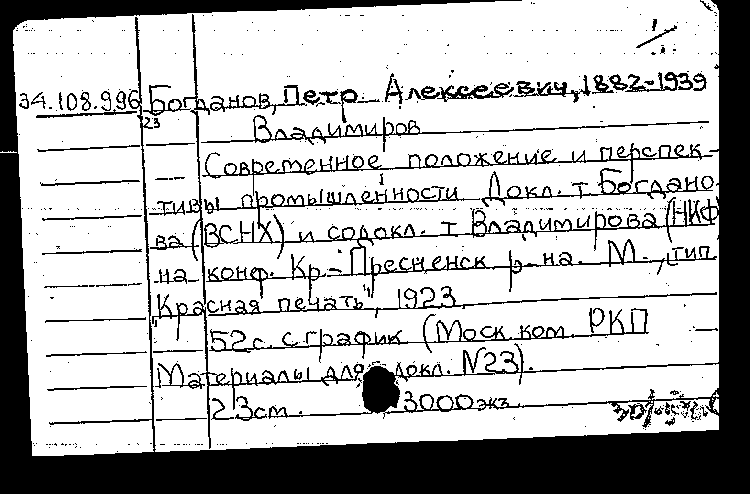 34.108.996 Богданов, Петр Алексеевич, 1882-1939
23
Владимиров
Современное положение и перспек-
тивы промышленности Докл. т Богдано-
ва (ВСНХ) и содокл. т Владимирова (НИФ
на конф. Кр.-Пресненск р-на. М., тип.
"Красная печать", 1923
52с. с график (Моск ком. РКП
Материалы для докл. №23).
23см. 3000экз